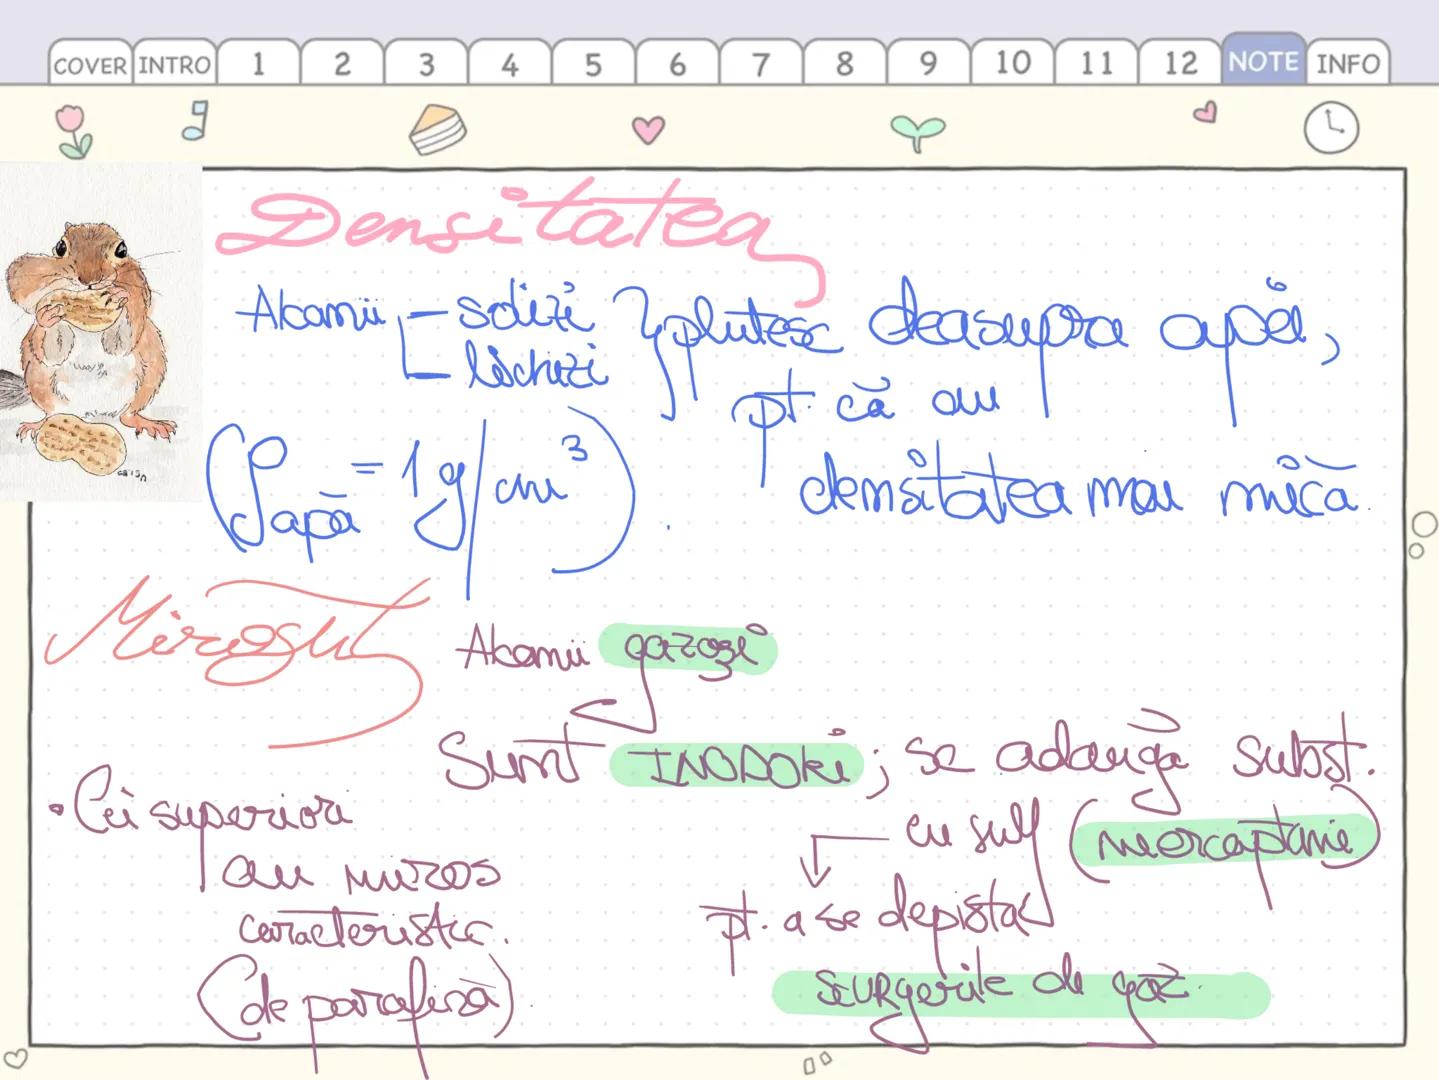 COVER INTRO 1 2 3 4 5 6 7 8 9 10 11 12 NOTE INFO
Densitatea
Alcanii solizi plutesc deasupra apei,
lichizi
pt. că au
densitatea mai mică.
(ρapă = 1g/cm³).
Mirosul
Alcanii gazoși
Sunt INODORI; se adaugă subst.
cu sulf (mercaptani)
pt. a se depista
scurgerile de gaz
• Cei superiori
au miros
caracteristic.
(de parafină)